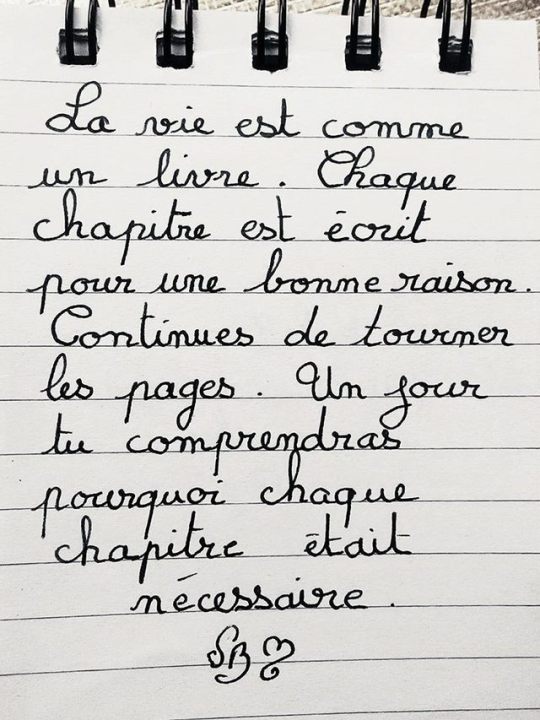 La vie est comme
un livre. Chaque
chapitre est écrit
pour une bonne raison.
Continues de tourner
les pages. Un jour
tu comprendras
pourquoi chaque
chapitre était
nécessaire.
SB ღ